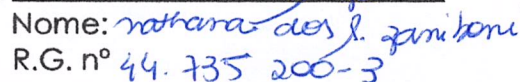 Nome: nathana dos S. zaniboni
R.G. nº 44.735 200-3